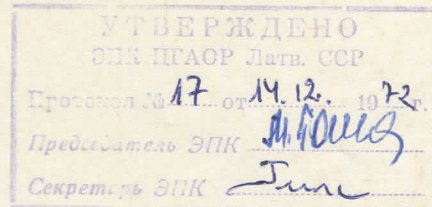 УТВЕРЖДЕНО
ЭПК ЦГАОР Латв. ССР
Протокол № 17 от 14.12. 1972 г.
Председатель ЭПК
Секретарь ЭПК